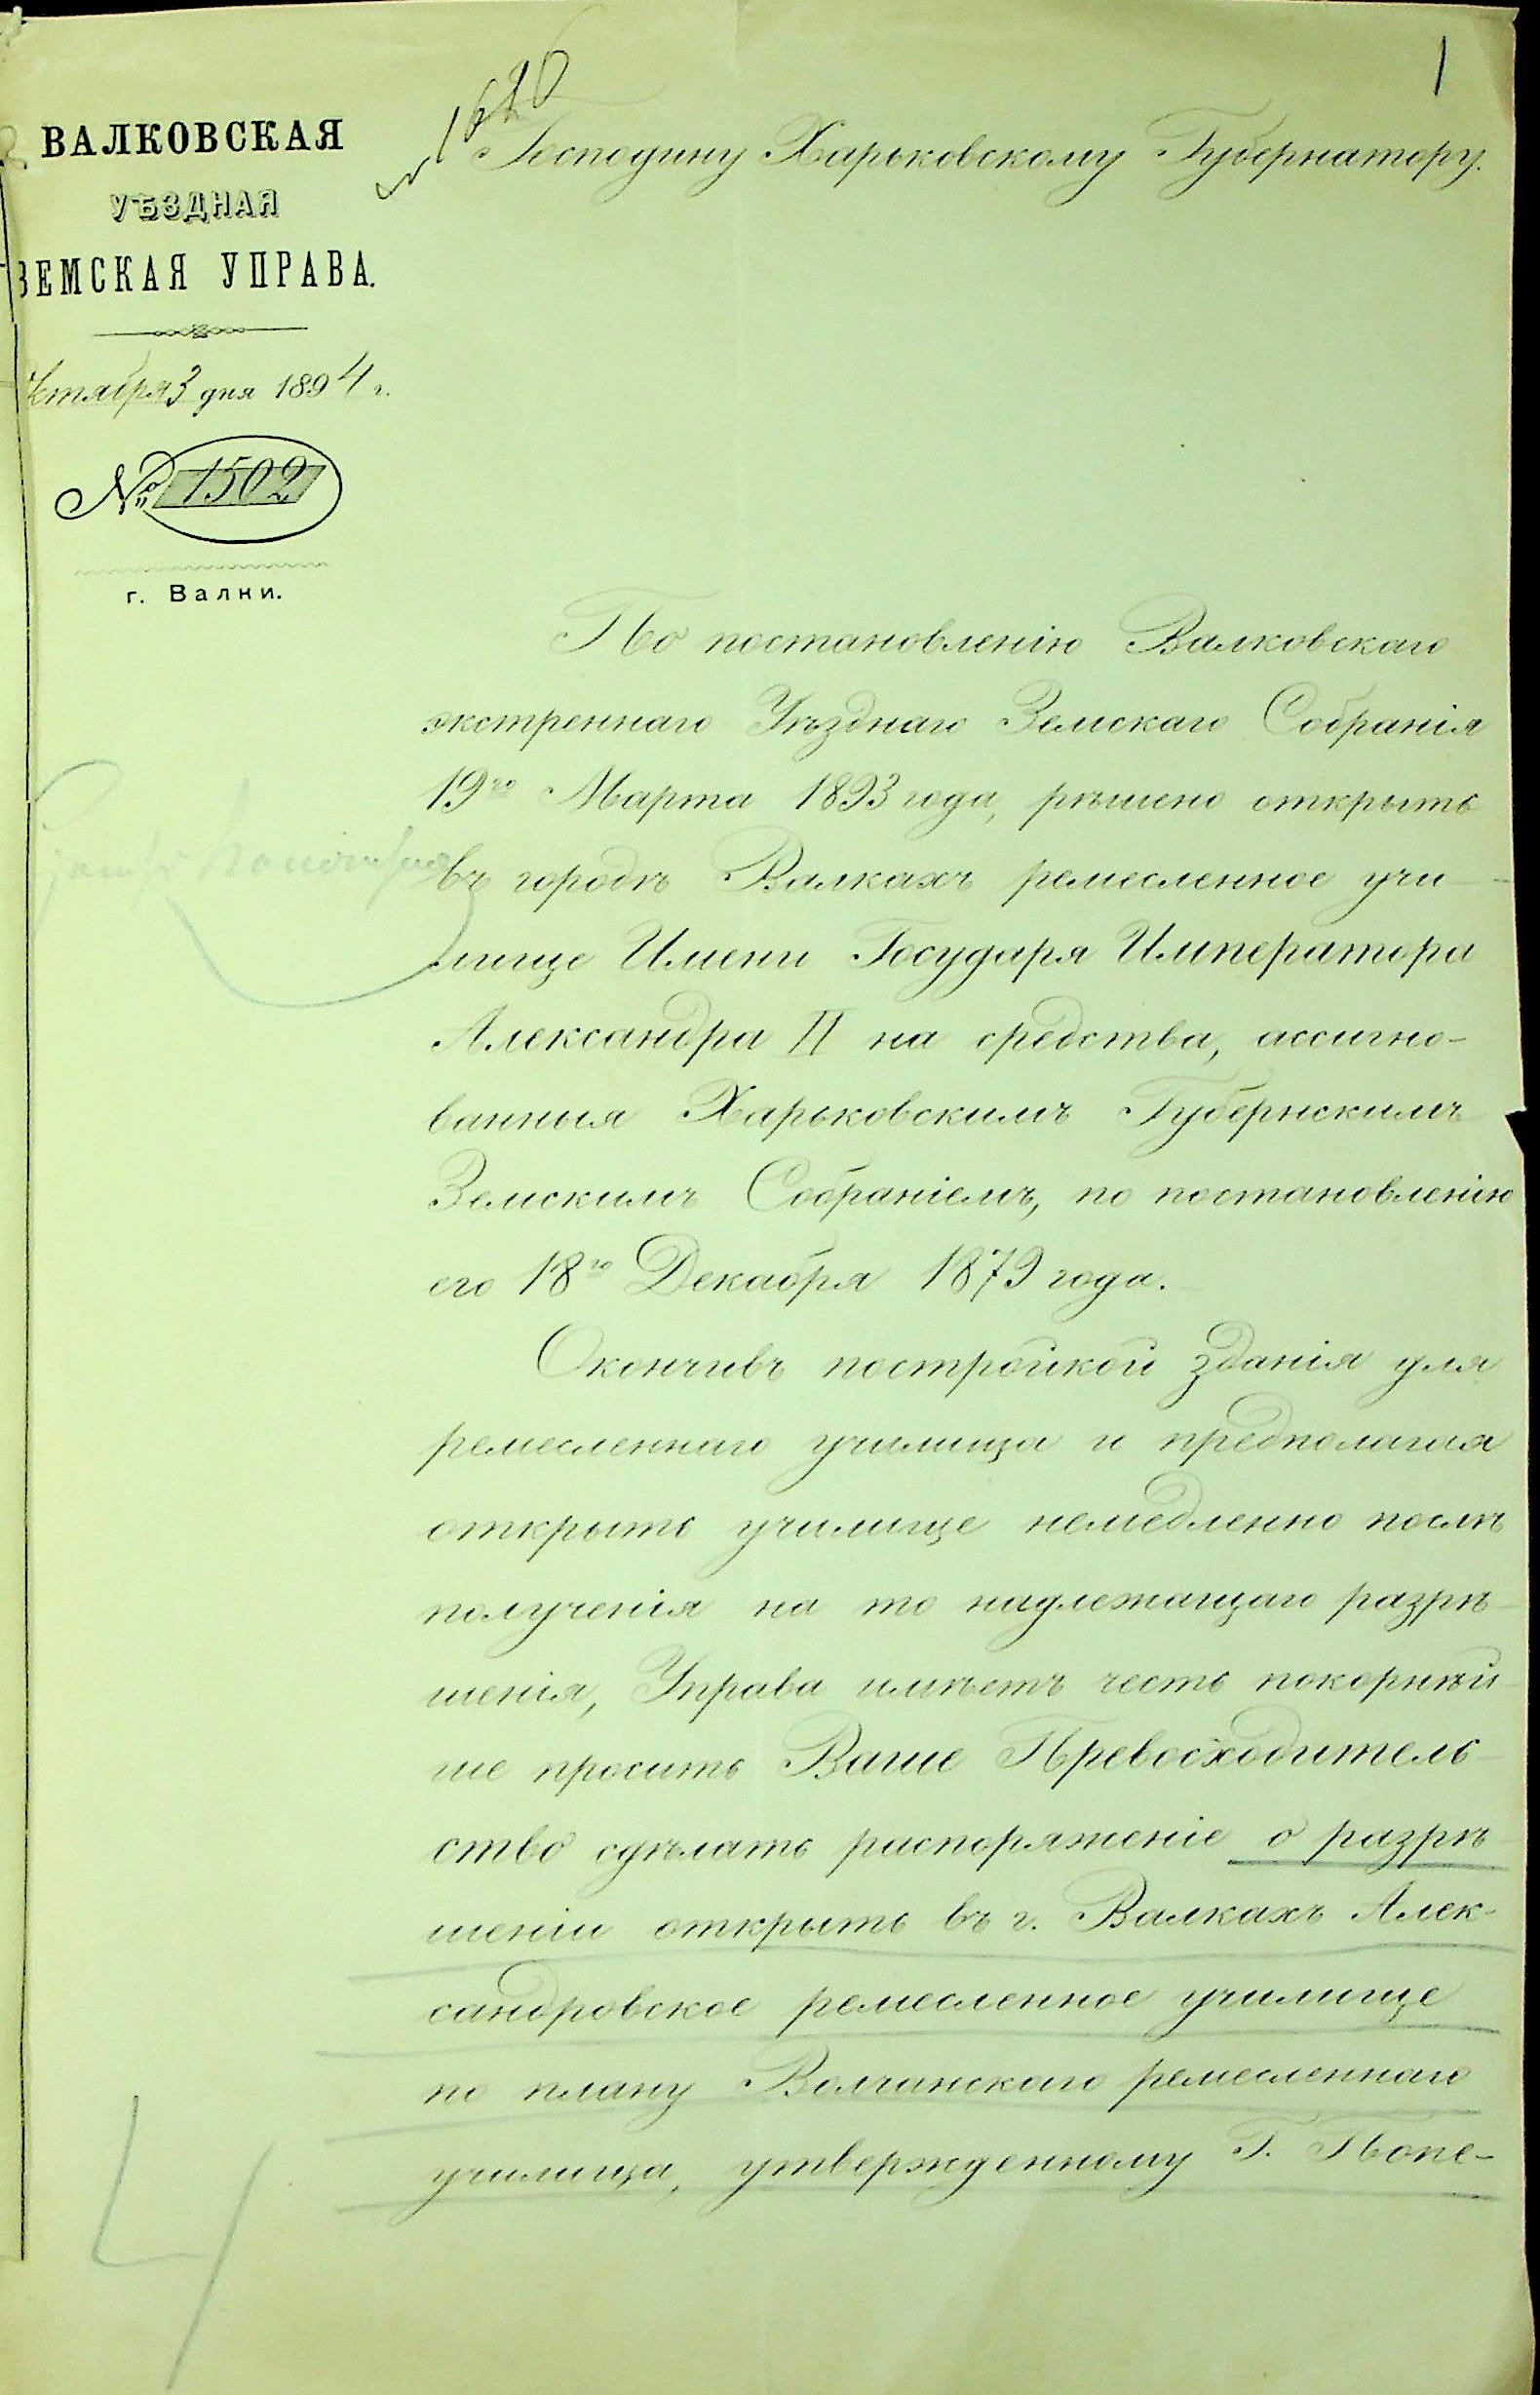 1
1626
ВАЛКОВСКАЯ
УѢЗДНАЯ
ЗЕМСКАЯ УПРАВА.
Октября 3 дня 1894 г.
№ 1502
г. Валки.
Господину Харьковскому Губернатору.
По постановленію Валковскаго
экстреннаго Уѣзднаго Земскаго Собранія
19го Марта 1893 года, рѣшено открыть
въ городѣ Валкахъ ремесленное учи-
лище Имени Государя Императора
Александра II на средства, ассигно-
ванныя Харьковскимъ Губернскимъ
Земскимъ Собраніемъ, по постановленію
его 18го Декабря 1879 года.
Окончивъ постройкой зданія для
ремесленнаго училища и предполагая
открыть училище немедленно послѣ
полученія на то надлежащаго разрѣ-
шенія, Управа имѣетъ честь покорнѣй-
ше просить Ваше Превосходитель-
ство сдѣлать распоряженіе о разрѣ-
шеніи открыть въ г. Валкахъ Алек-
сандровское ремесленное училище
по плану Волчанскаго ремесленнаго
училища, утвержденному Г. Попе-